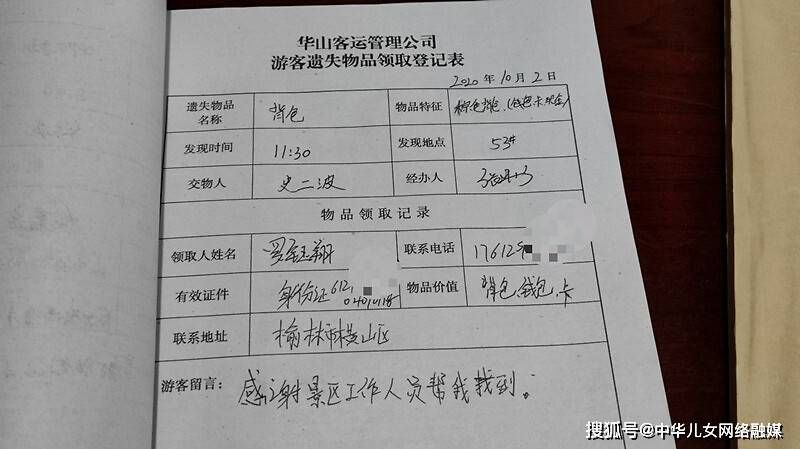 华山客运管理公司
游客遗失物品领取登记表
2020年10月2日
遗失物品名称 背包 物品特征 棕色挎包(钱包.卡.现金)
发现时间 11:30 发现地点 53#
交物人 史二波 经办人
物品领取记录
领取人姓名 罗钰翔 联系电话 17612
有效证件 身份证612 物品价值 背包.钱包.卡
联系地址 榆林市横山区
游客留言: 感谢景区工作人员帮我找到。
搜狐号@中华儿女网络融媒